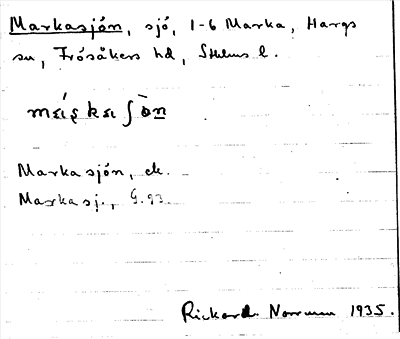 Markasjön, sjö, 1-6 Marka, Hargs
sn, Frösåkers hd, Sthlms l.
Markasjön, ek.
Markasj., G.93.
Rickard Norrman 1935.